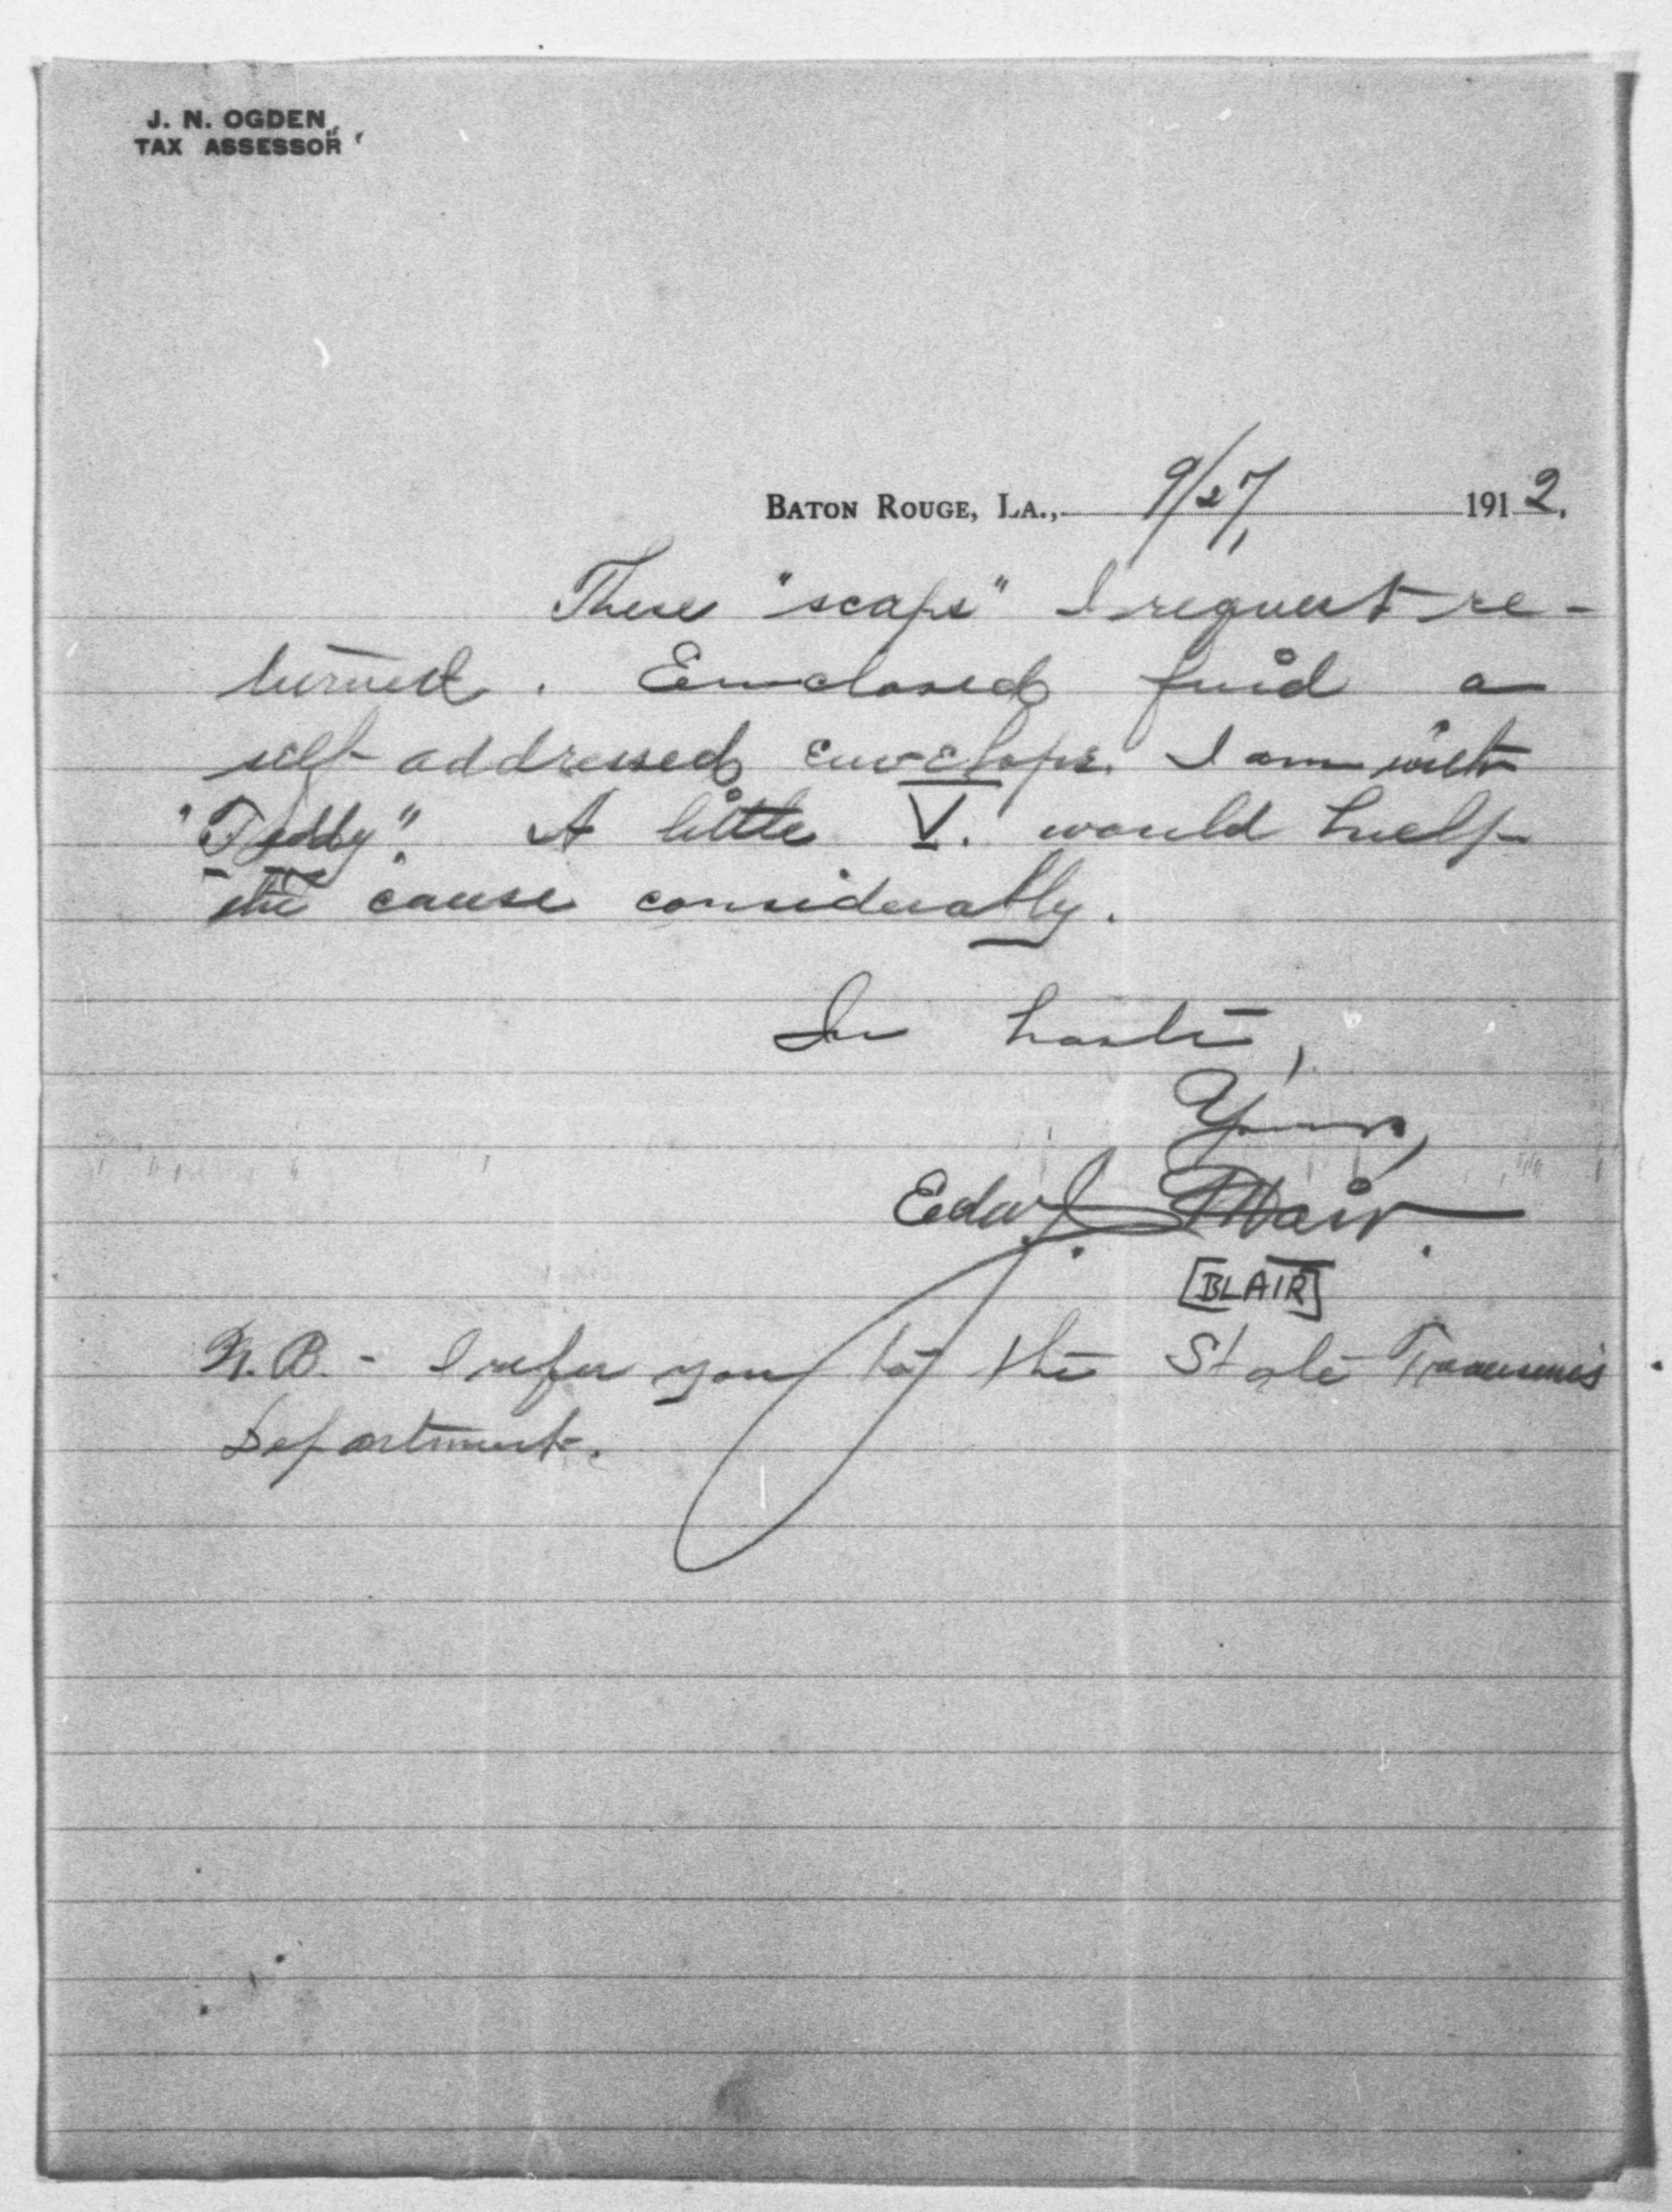 J. N. OGDEN
TAX ASSESSOR
BATON ROUGE, LA., 9/27, 1912.
These "scaps" I request re-
turned. Enclosed find a
self-addressed envelope. I am with
"Teddy". A little V. would help
the cause considerably.
In haste,
Yours,
Edw. J. Blair.
[BLAIR]
N.B. - I refer you to the State Treasurer's
Department.